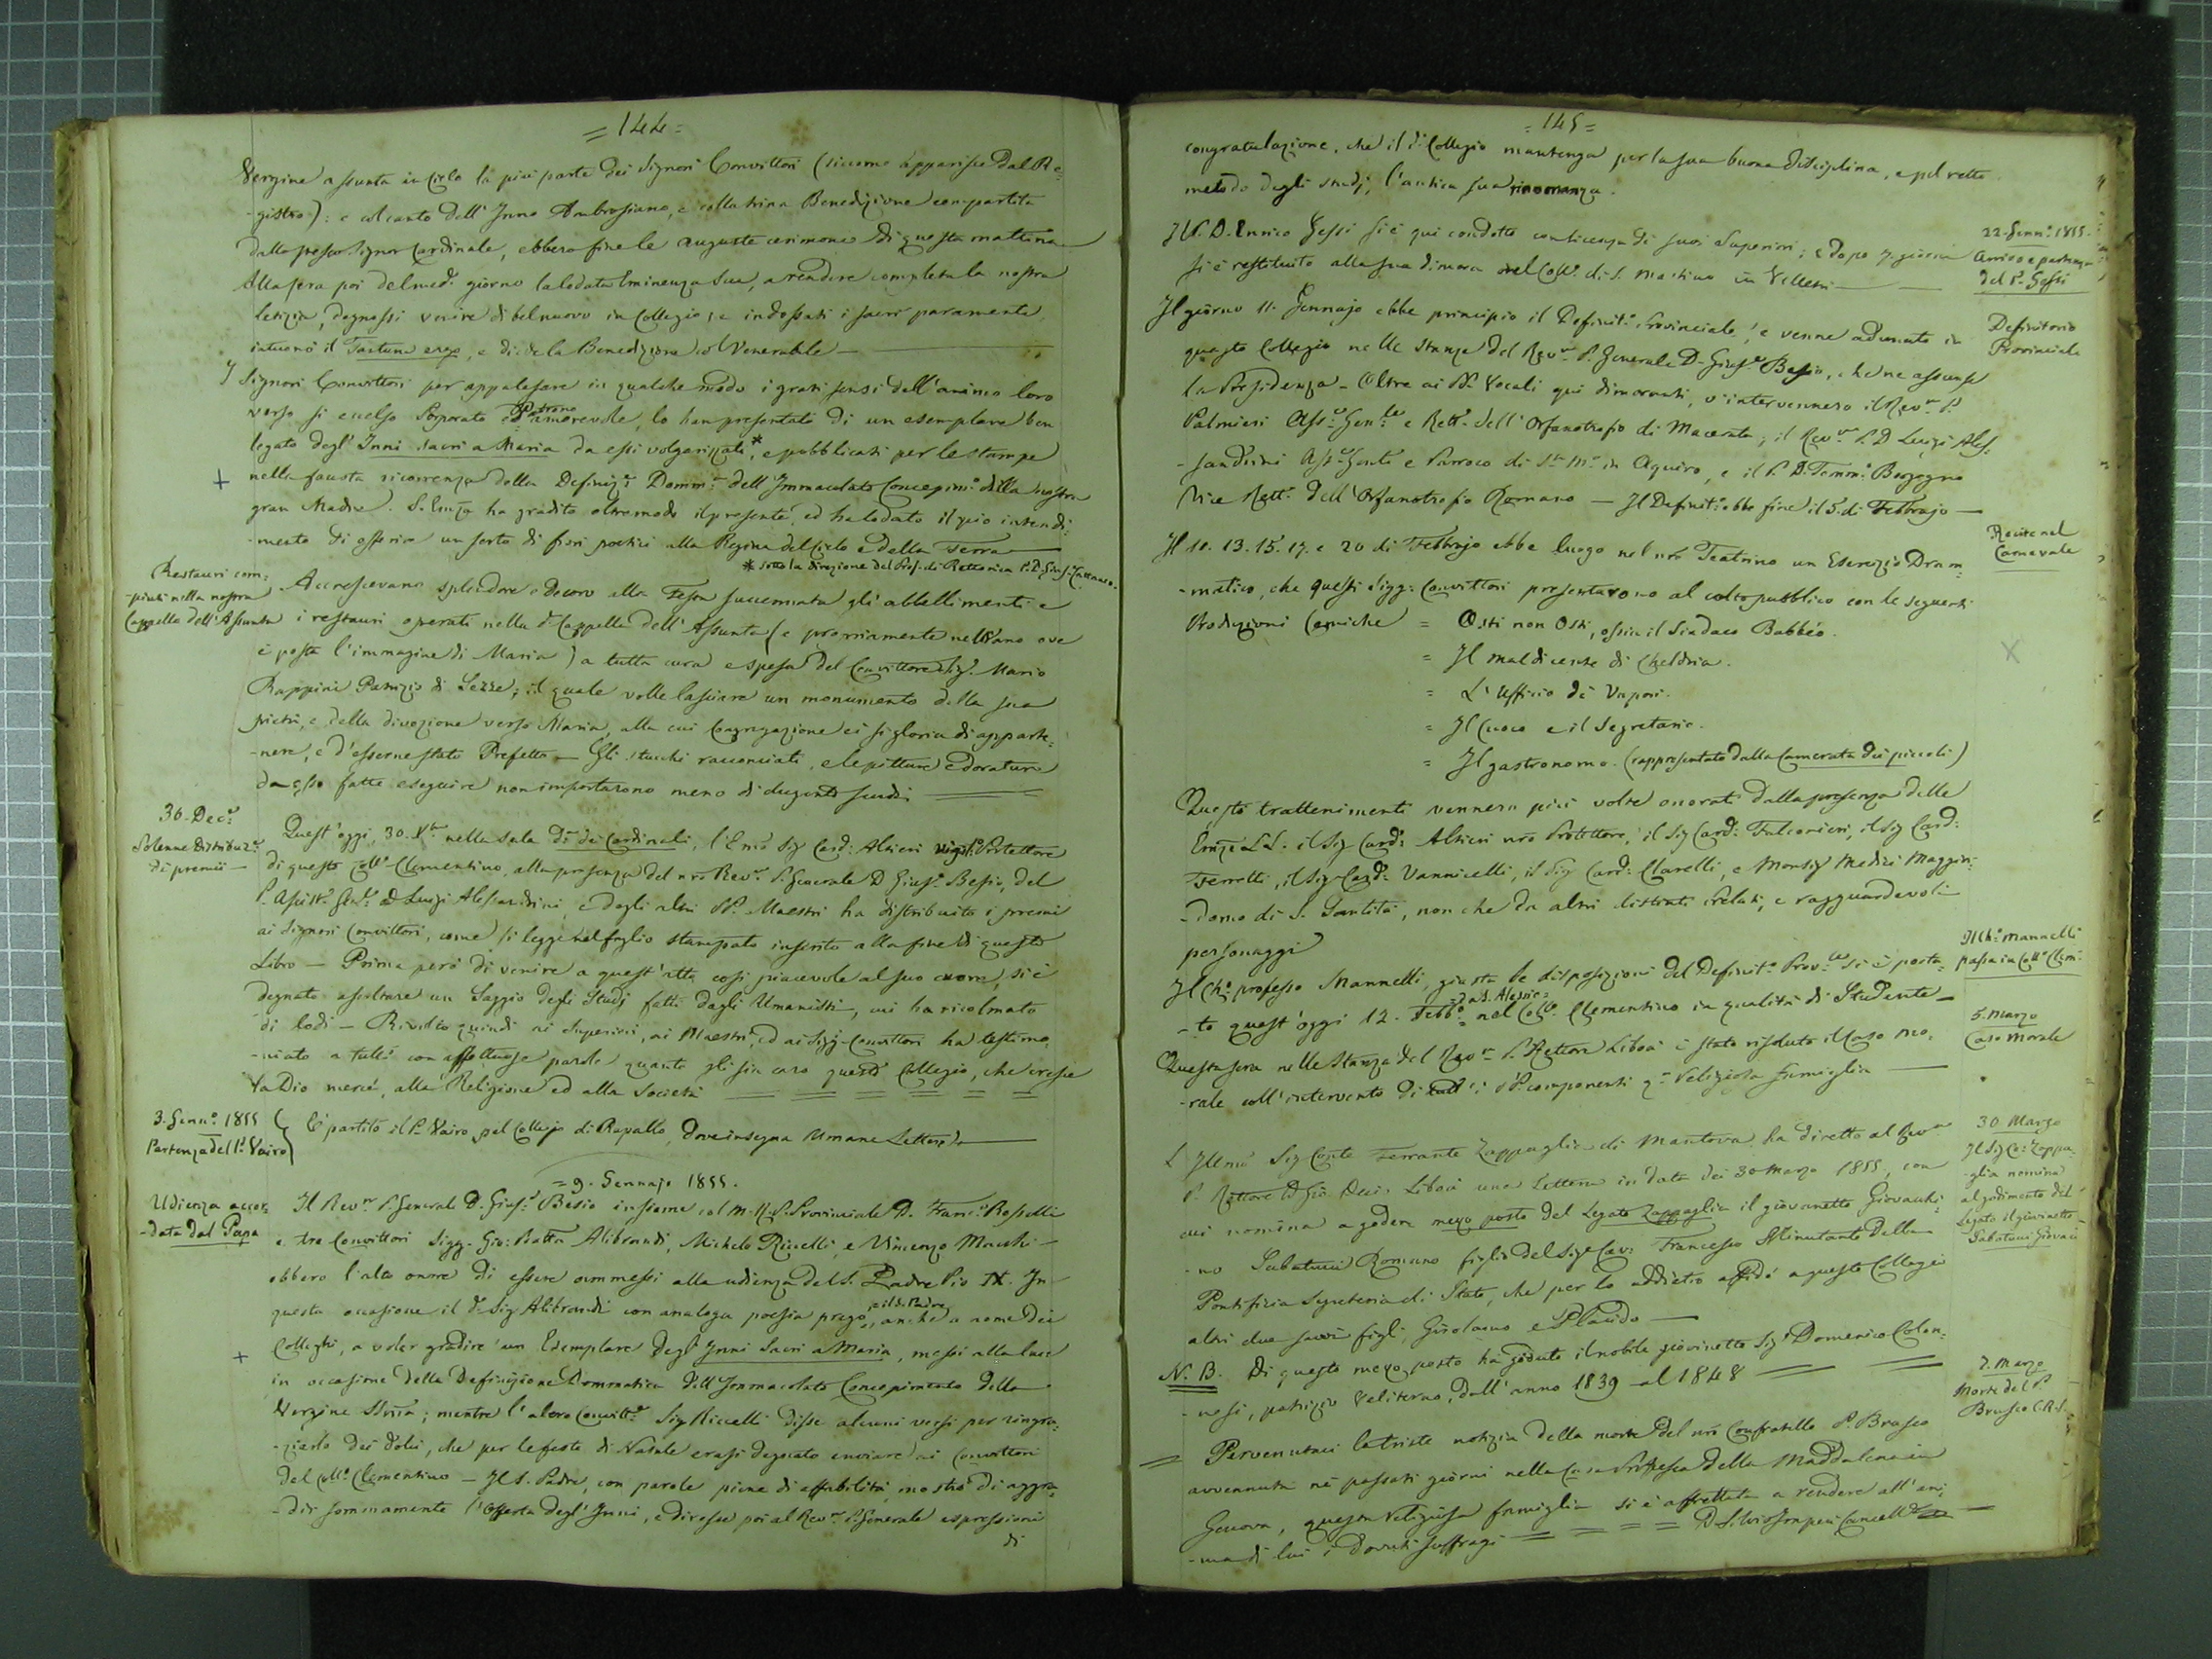 = 144 =
Vergine assunta in Cielo la più parte dei Signori Convittori (siccome apparisce dal Re-
-gistro): e col canto dell'Inno Ambrosiano, e colla trina Benedizione compartita
dallo stesso Signor Cardinale, ebbero fine le auguste cerimonie di questa mattina
Alla sera poi del med.° giorno la lodata Eminenza Sua, a rendere completa la nostra
letizia, degnossi venire di bel nuovo in Collegio, e indossati i sacri paramenti
intuonò il Tantum ergo, e diede la Benedizione col Venerabile —
I Signori Convittori per appalesare in qualche modo i grati sensi dell'animo loro
verso sì eccelso Porporato e Patrono amorevole, lo han presentato di un esemplare ben
legato degl'Inni sacri a Maria da essi volgarizzati,* e pubblicati per le stampe
+ nella fausta ricorrenza della Definiz.e Domm.a dell'Immacolato Concepim.° della nostra
gran Madre. S. Emza ha gradito oltremodo il presente, ed ha lodato il pio intendi-
-mento di offerire un serto di fiori poetici alla Regina del Cielo e della Terra —
* sotto la direzione del Prof. di Rettorica P. D. Gius.e Cattaneo.
Restauri com-
-piuti nella nostra
Cappella dell'Assunta
Accrescevano splendore e decoro alla Festa succennata gli abbellimenti e
i restauri operati nella d.a Cappella dell'Assunta (e propriamente nell'ano ove
è posta l'immagine di Maria) a tutta cura e spesa del Convittore Sig. Mario
Rappini Patrizio di Sezze; il quale volle lasciare un monumento della sua
pietà, e della divozione verso Maria, alla cui Congregazione ei si gloria di apparte-
-nere, e d'esserne stato Prefetto — Gli stucchi racconciati, e le pitture e dorature
da esso fatte eseguire non importarono meno di dugento scudi —
30. Dec.e
Solenne Distribuz.e
di premii —
Quest'oggi, 30. Xbre nella sala d.a dei Cardinali, l'Emo Sig. Card: Altieri Protettore
di questo Coll.° Clementino, alla presenza del nro Rev.mo P. Generale D. Gius.e Besio, del
P. Assist.e Gen.le D. Luigi Alessandrini, e degli altri PP. Maestri ha distribuito i premi
ai Signori Convittori, come si legge nel foglio stampato inserito alla fine di questo
Libro — Prima però di venire a quest'atto così piacevole al suo cuore, si è
degnato ascoltare un Saggio degli Studj fatti dagli Umanisti, cui ha ricolmato
di lodi — Rivolto quindi ai Superiori, ai Maestri, ed ai Sigg. Convittori ha testimo-
-niato a tutti con affettuose parole quanto gli sia caro questo Collegio, che cresce
la Dio mercé, alla Religione ed alla Società = = = = = =
3. Genn.° 1855
Partenza del P. Vairo
È partito il P. Vairo pel Collegio di Rapallo, dove insegna Umane Lettere —
= 9. Gennajo 1855.
Udienza accor-
-data dal Papa
Il Rev.mo P. Generale D. Gius.e Besio insieme col M. R. P. Provinciale D. Franc.° Rosselli
e tre Convittori Sigg. Gio: Batta Alibrandi, Michele Riccelli, e Vincenzo Macchi —
ebbero l'alto onore di essere ammessi alla udienza del S. Padre Pio IX. In
questa occasione il d.° Sig. Alibrandi con analoga poesia pregò il S. Padre, anche a nome dei
Colleghi, a voler gradire un Esemplare degl'Inni Sacri a Maria, messi alla luce
+ in occasione della Definizione Dommatica dell'Immacolato Concepimento della
Vergine SSma; mentre l'altro Convitt.e Sig. Riccelli disse alcuni versi per ringra-
-ziarlo dei dolci, che per le feste di Natale erasi degnato inviare ai Convittori
del Coll.° Clementino — Il S. Padre, con parole piene di affabilità, mostrò di aggra-
-dir sommamente l'offerta degl'Inni, e diresse poi al Rev.mo P. Generale espressioni
di
= 145 =
congratulazione, che il d.° Collegio mantenga per la sua buona disciplina, e pel retto
metodo degli studj, l'antica sua rinomanza.
Il P. D. Enrico Gessi si è qui condotto con licenza di suoi Superiori; e dopo 7. giorni
si è restituito alla sua dimora nel Coll.° di S. Martino in Velletri —
22. Genn.° 1855.
Arrivo e partenza
del P. Gessi
Il giorno 11. Gennajo ebbe principio il Definit.° Provinciale, e venne adunato in
questo Collegio nelle stanze del Rev.mo P. Generale D. Gius.e Besio, che ne assunse
la Presidenza — Oltre ai PP. Vocali qui dimoranti, v'intervennero il Rev.mo P.
Palmieri Ass.te Gen.le e Rett.e dell'Orfanotrofio di Macerata; il Rev.mo P. D. Luigi Ales-
-sandrini Ass.te Gen.le e Parroco di S.ta M.a in Aquiro, e il P. D. Tomm.° Borgogno
Vice Rett.e dell'Orfanotrofio Romano — Il Definit.° ebbe fine il 5. di Febbrajo —
Definitorio
Provinciale
Il 10. 13. 15. 17. e 20 di Febbrajo ebbe luogo nel nro Teatrino un Esercizio Dram-
-matico, che questi Sigg. Convittori presentarono al colto pubblico con le seguenti
Produzioni Comiche = Osti non Osti, ossia il Sindaco Babbéo.
= Il maldicente di Cheldria.
= L'Ufficio dei Vapori.
= Il Cuoco e il Segretario.
= Il gastronomo. (rappresentato dalla Camerata dei piccoli)
Recite nel
Carnevale
X
Questi trattenimenti vennero più volte onorati dalla presenza delle
Emze LL. il Sig. Card: Altieri nro Protettore, il Sig. Card: Falconieri, il Sig. Card:
Ferretti, il Sig. Card: Vannicelli, il Sig. Card: Clarelli, e Monsig. Medici Maggior-
-domo di S. Santità, non che da altri distinti Prelati, e ragguardevoli
personaggi
Il Ch.° professo Mannelli, giusta le disposizioni del Definit.° Prov.le si è porta-
-to quest'oggi 12. Febb.° da S. Alessio nel Coll.° Clementino in qualità di Studente —
Il Ch.° Mannelli
passa in Coll.° Clem.°
Questa sera nelle Stanze del Rev.mo P. Rettore Liboà è stato risoluto il Caso Mo-
-rale coll'intervento di tutti i PP. componenti q.a Religiosa famiglia —
5. Marzo
Caso Morale
L'Illmo Sig. Conte Ferrante Zappaglia di Mantova ha diretto al Rev.mo
P. Rettore D. Gio. Dec.° Liboà una Lettera in data dei 30 Marzo 1855, con
cui nomina a godere mezzo posto del Legato Zappaglia il giovanetto Giovacchi-
-no Sabatucci Romano figlio del Sig. Cav. Francesco Minutante della
Pontificia Segreteria di Stato, che per lo addietro affidò a questo Collegio
altri due suoi figli, Girolamo e Placido —
30 Marzo
Il Sig. Co: Zappa-
-glia nomina
al godimento del
Legato il giovinetto
Sabatucci Giovac.°
N. B. Di questo mezzo posto ha goduto il nobile giovinetto Sig. Domenico Colon-
-nesi, patrizio Veliterno, dall'anno 1839 al 1848 =
= Pervenutaci la triste notizia della morte del nro Confratello P. Brasco
avvenuta ne' passati giorni nella Casa Professa della Maddalena in
Genova, questa religiosa famiglia si è affrettata a rendere all'ani-
-ma di lui i dovuti suffragi = = = = =
2. Marzo
Morte del P.
Brasco C.R.S.